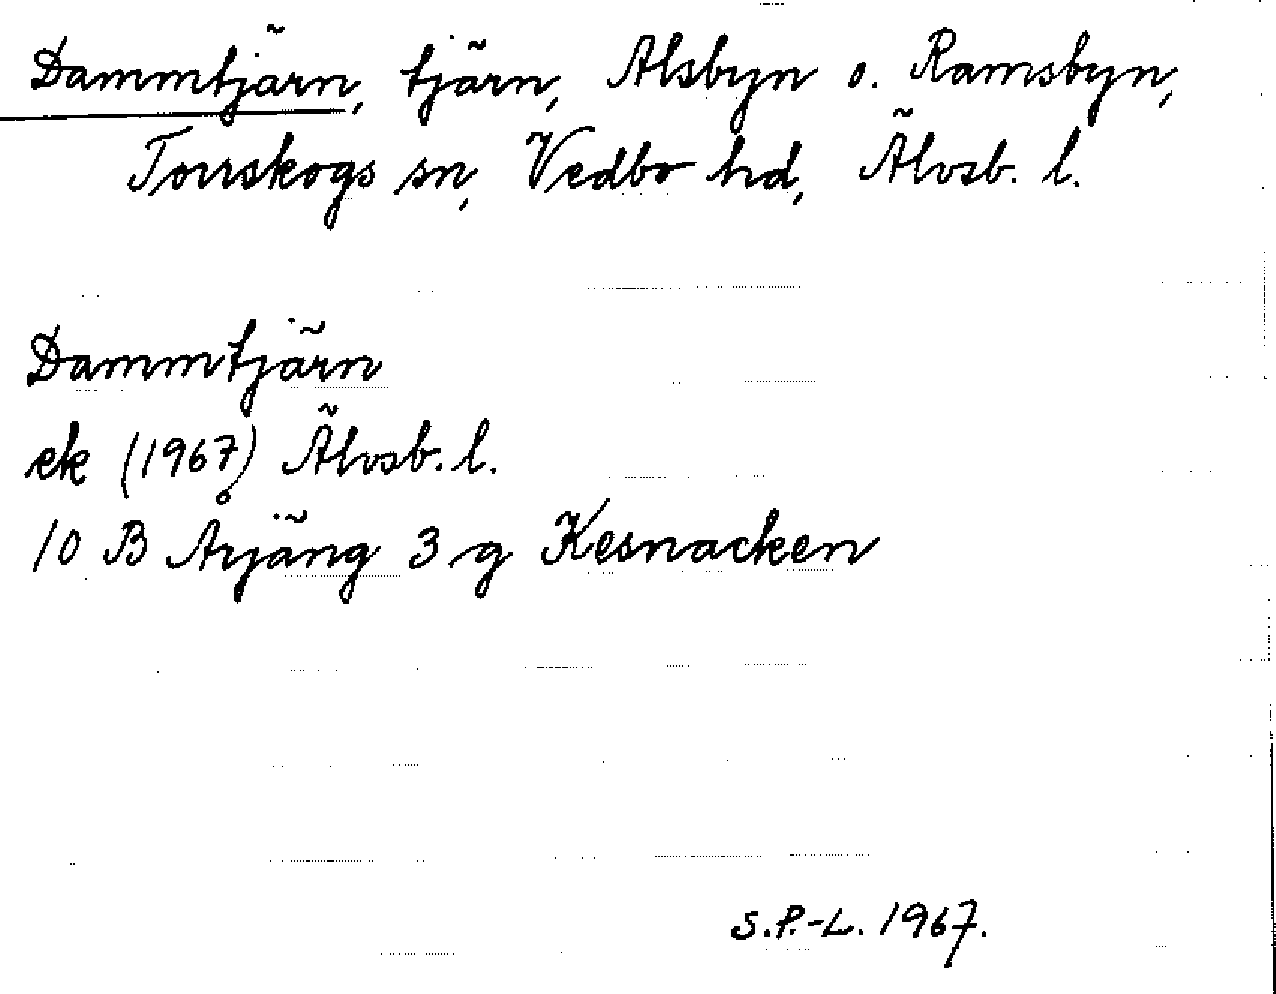 Dammtjärn, tjärn, Alsbyn o. Ramsbyn,
Torrskogs sn, Vedbo hd, Älvsb. l.
Dammtjärn
ek (1967) Älvsb. l.
10 B Årjäng 3 g Kesnacken
S.P.-L. 1967.